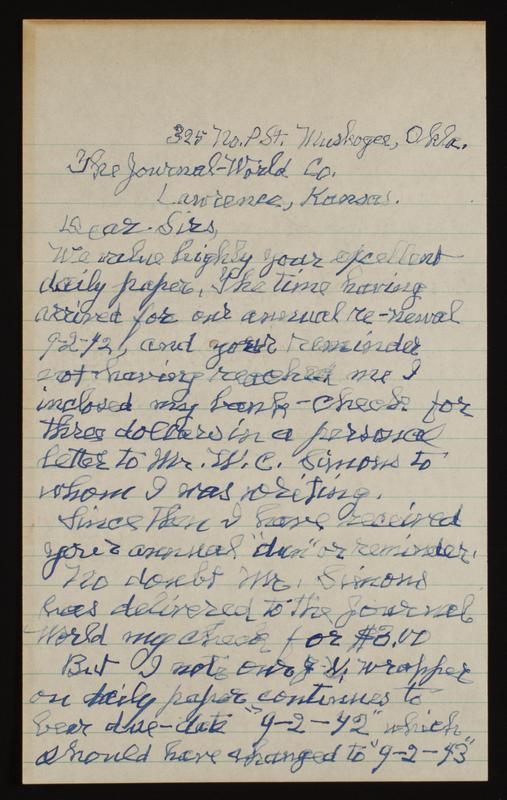 325 No. P St. Muskogee, Okla.
The Journal-World Co.
Lawrence, Kansas.
Dear Sirs,
We value highly your excellent
daily paper. The time having
arrived for our annual re-newal
9-2-42, and your reminder
not having reached me I
inclosed my bank-check for
three dollars in a personal
letter to Mr. W. C. Simons to
whom I was writing.
Since then I have received
your annual "dun" or reminder.
No doubt Mr. Simons
has delivered to the Journal
World my check for $3.00
But I note our wrapper
on daily paper continues to
bear due-date "9-2-42" which
should have changed to "9-2-43"